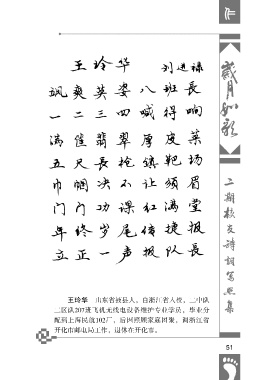 王玲华 刘进禄
飒爽英姿八班长
一二三四喊得响
满筐翡翠厚皮菜
五尺长枪镇靶场
巾帼决不让须眉
门门功课红满堂
年终岁尾传捷报
立正一声报队长
王玲华 山东省掖县人。自浙江省入校,二中队
二区队207班飞机无线电设备维护专业学员。毕业分
配到上海民航102厂,后因照顾家庭团聚,调浙江省
开化市邮电局工作,退休在开化市。
岁月如歌
二期校友诗词写照集
51